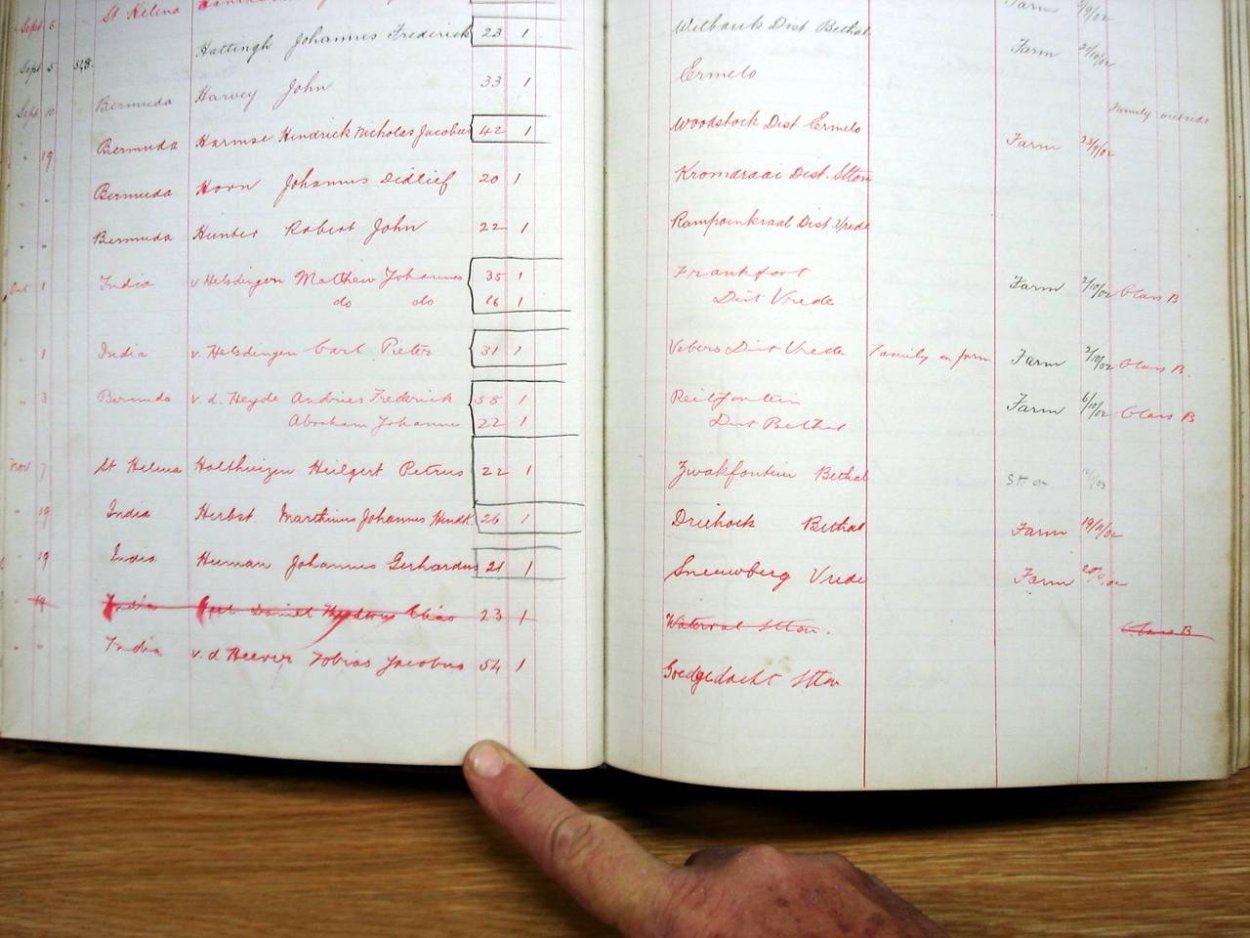 Sept 6 St Helena Farm 9/02
Hattingh Johannes Frederick 23 1 Wilbank Dist Bethal Farm 2/10/02
Sept 5 528.
Bermuda Harvey John 33 1 Ermelo
Sept 10 Family outside
" 19 Bermuda Harmse Hendrick Nicholas Jacobus 42 1 Woodstock Dist Ermelo Farm 23/9/02
" " Bermuda Horn Johannes Didlief 20 1 Kromdraai Dist. Stton
" " Bermuda Hunter Robert John 22 1 Rampoenkraal Dist Vrede
Oct 1 India v Helsdingen Mathew Johannes 35 1 Frankfort Farm 2/10/02 Class B
do do 16 1 Dist Vrede
" 1 India v. Helsdingen Carl Pieter 31 1 Vebers Dist Vrede Family on farm Farm 2/10/02 Class B.
" 3 Bermuda v. d. Heyde Andries Frederick 58 1 Reitfontein Farm 6/10/02 Class B
Abraham Johannes 22 1 Dist Bethal
Nov 7 St Helena Holthuizen Heilgert Petrus 22 1 Zwakfontein Bethal Stton
" 19 India Herbst Marthinus Johannes Hendk 26 1 Driehoek Bethal Farm 19/11/02
" 19 India Human Johannes Gerhardus 21 1 Sneeuwberg Vrede Farm
" 19 India Daniel Elias 23 1 Waterval Stton. Class B
" " India v. d Heever Tobias Jacobus 54 1 Goedgedacht Stton